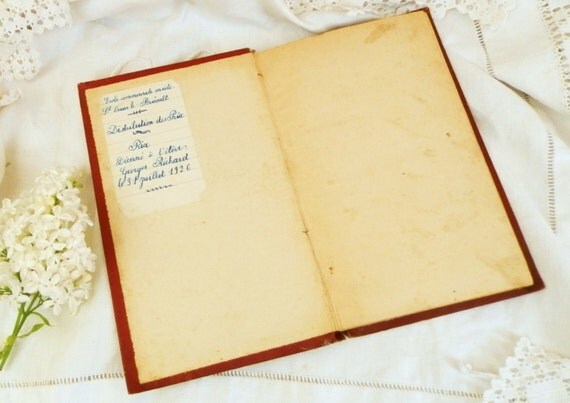 Ecole communale mixte
Distribution des Prix
Prix
Décerné à l'élève
Georges Richard
le 31 juillet 1926